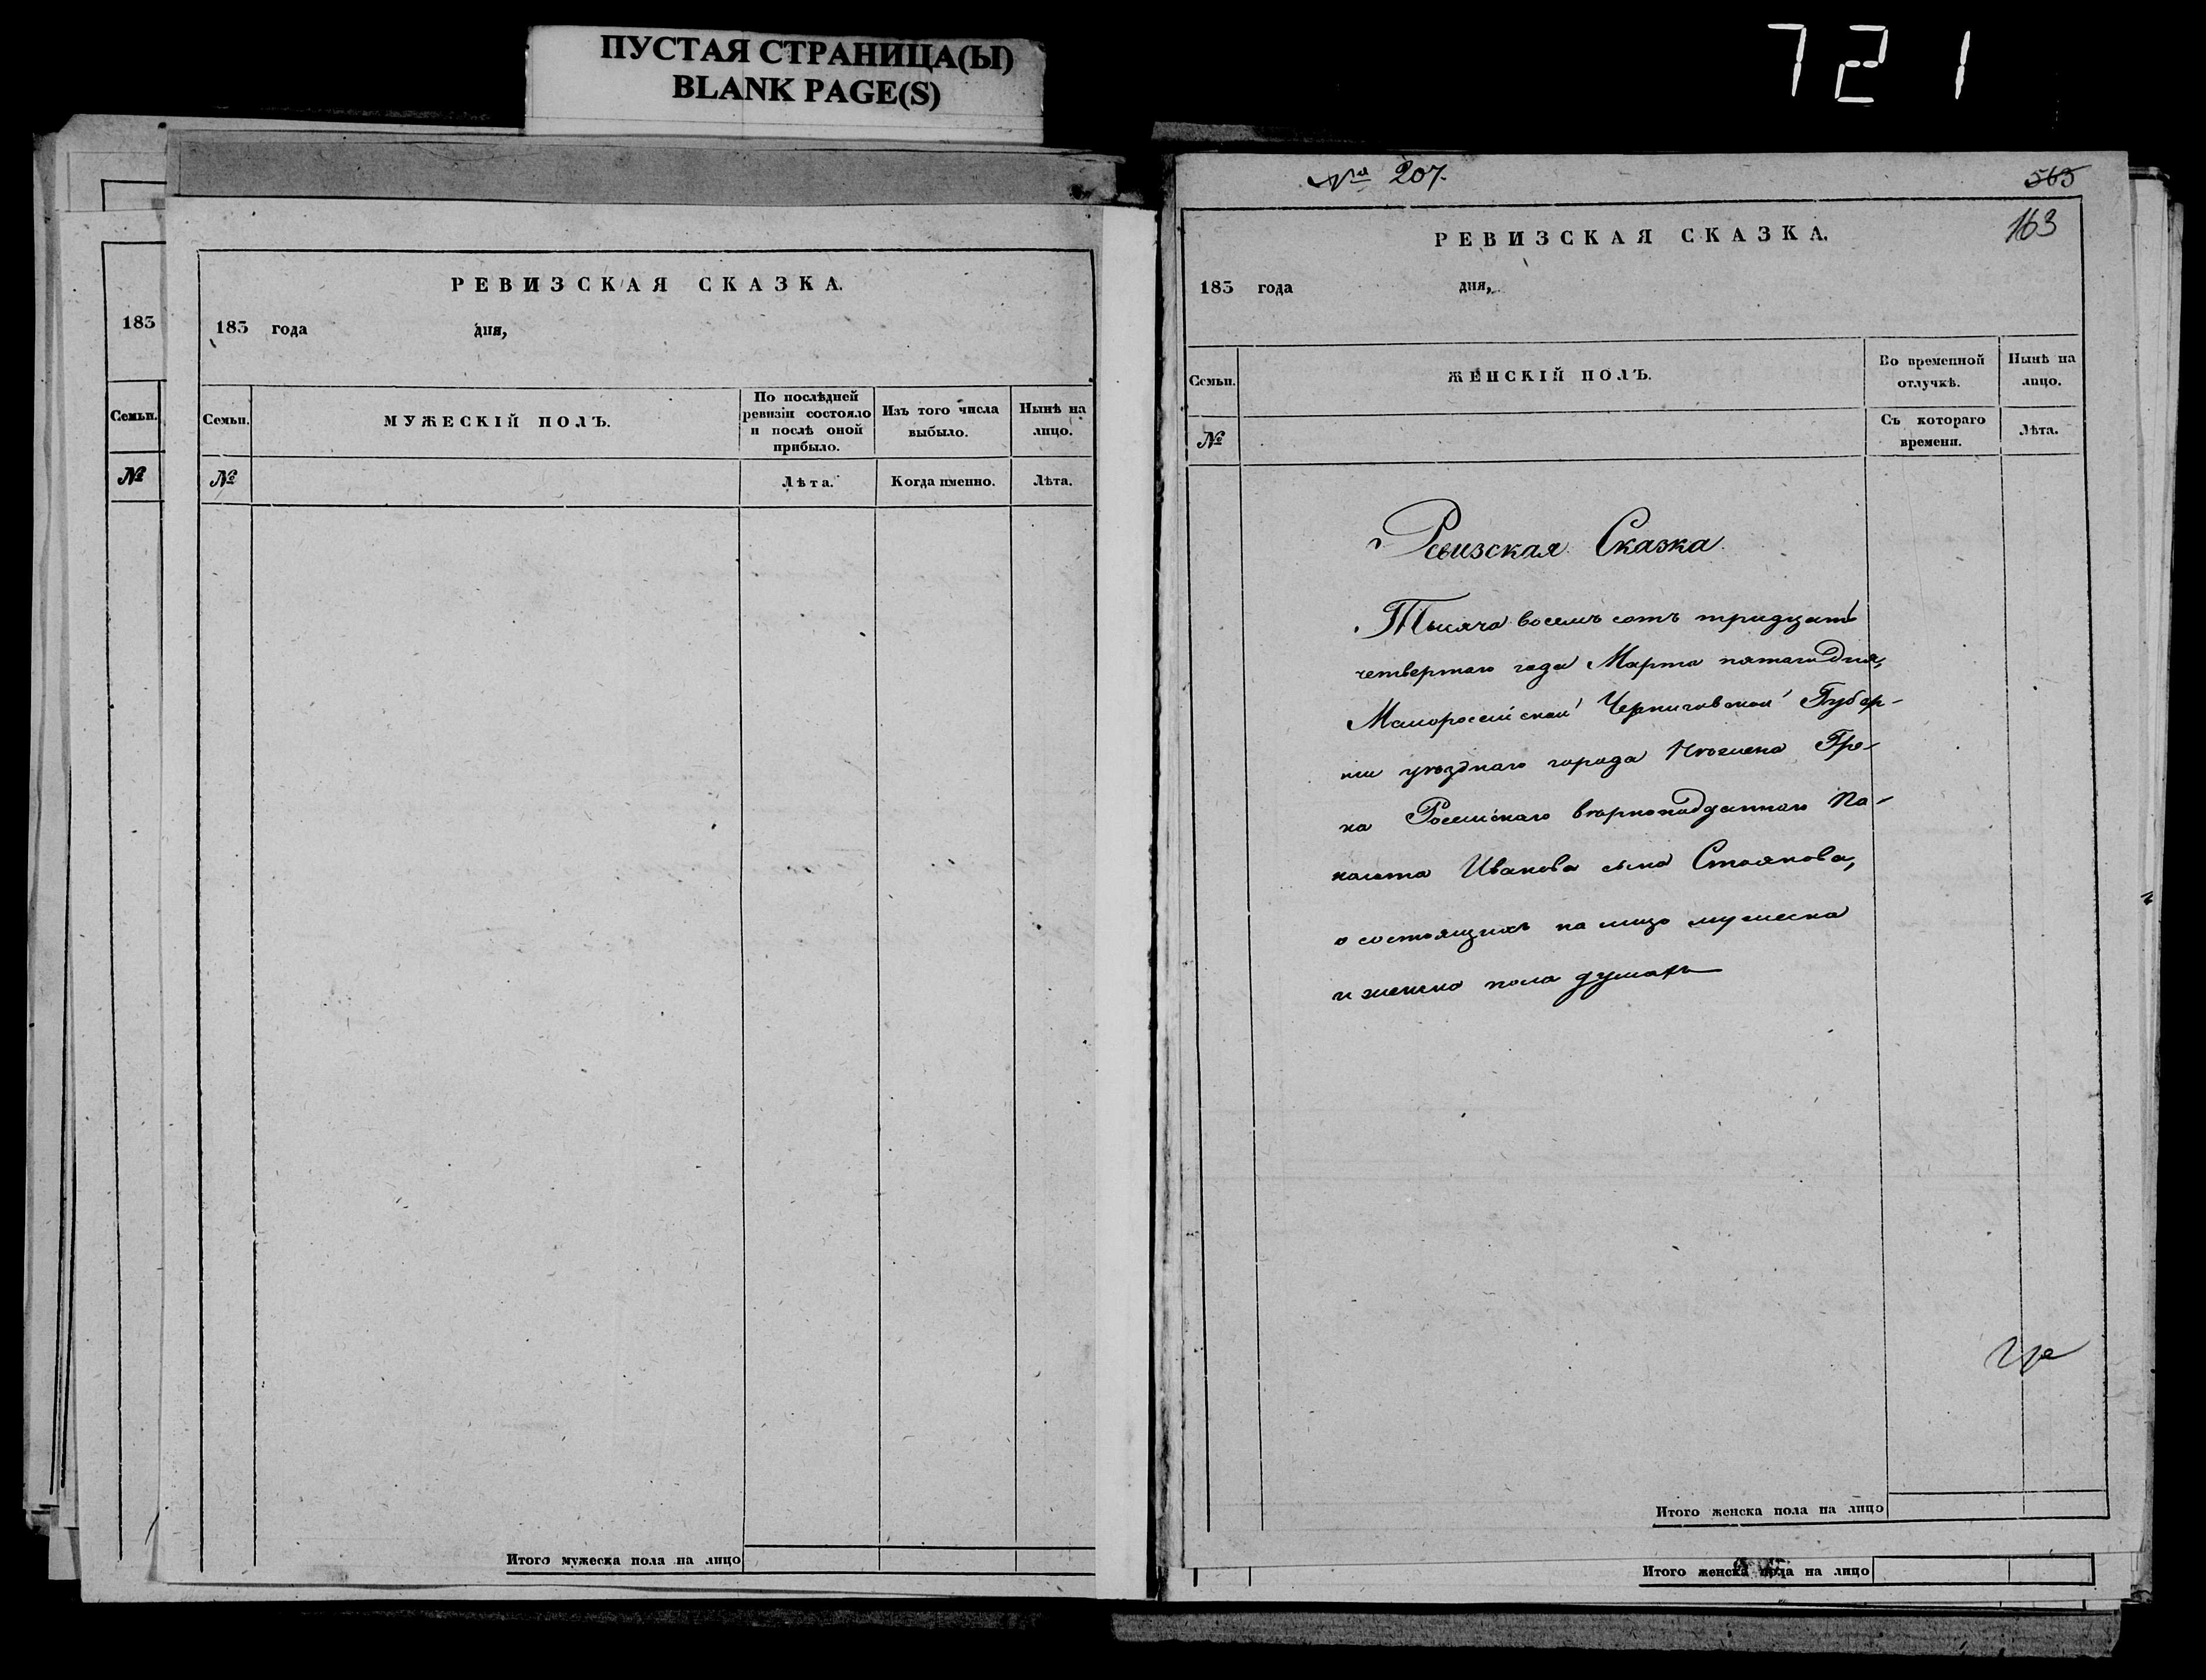 ПУСТАЯ СТРАНИЦА(Ы)
BLANK PAGE(S)
721
183
Семьи.
№
РЕВИЗСКАЯ СКАЗКА.
183 года дня,
Семьи.
МУЖЕСКІЙ ПОЛЪ.
По послѣдней ревизіи состояло и послѣ оной прибыло.
Изъ того числа выбыло.
Нынѣ на лицо.
№
Лѣта.
Когда именно.
Лѣта.
Итого мужеска пола на лицо
№ 207.
563
163
РЕВИЗСКАЯ СКАЗКА.
183 года дня,
Семьи.
ЖЕНСКІЙ ПОЛЪ.
Во временной отлучкѣ.
Нынѣ на лицо.
№
Съ котораго времени.
Лѣта.
Ревизская Сказка
Тысяча восемь сотъ тридцать
четвертаго года Марта пятаго дня,
Малороссійской Черниговской Губер-
ніи уѣзднаго города Нѣжина Гре-
ка Россійскаго вѣрноподданнаго Па-
наіота Иванова сына Стоянова,
о состоящихъ на лицо мужеска
и женска пола душахъ
Итого женска пола на лицо
Итого женска пола на лицо